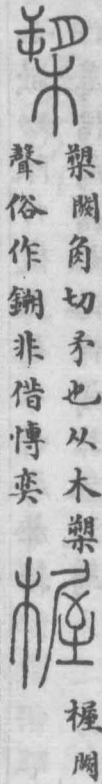 槊
槊闕角切矛也从木槊
聲俗作鎙非借愽奕
楃
楃闕